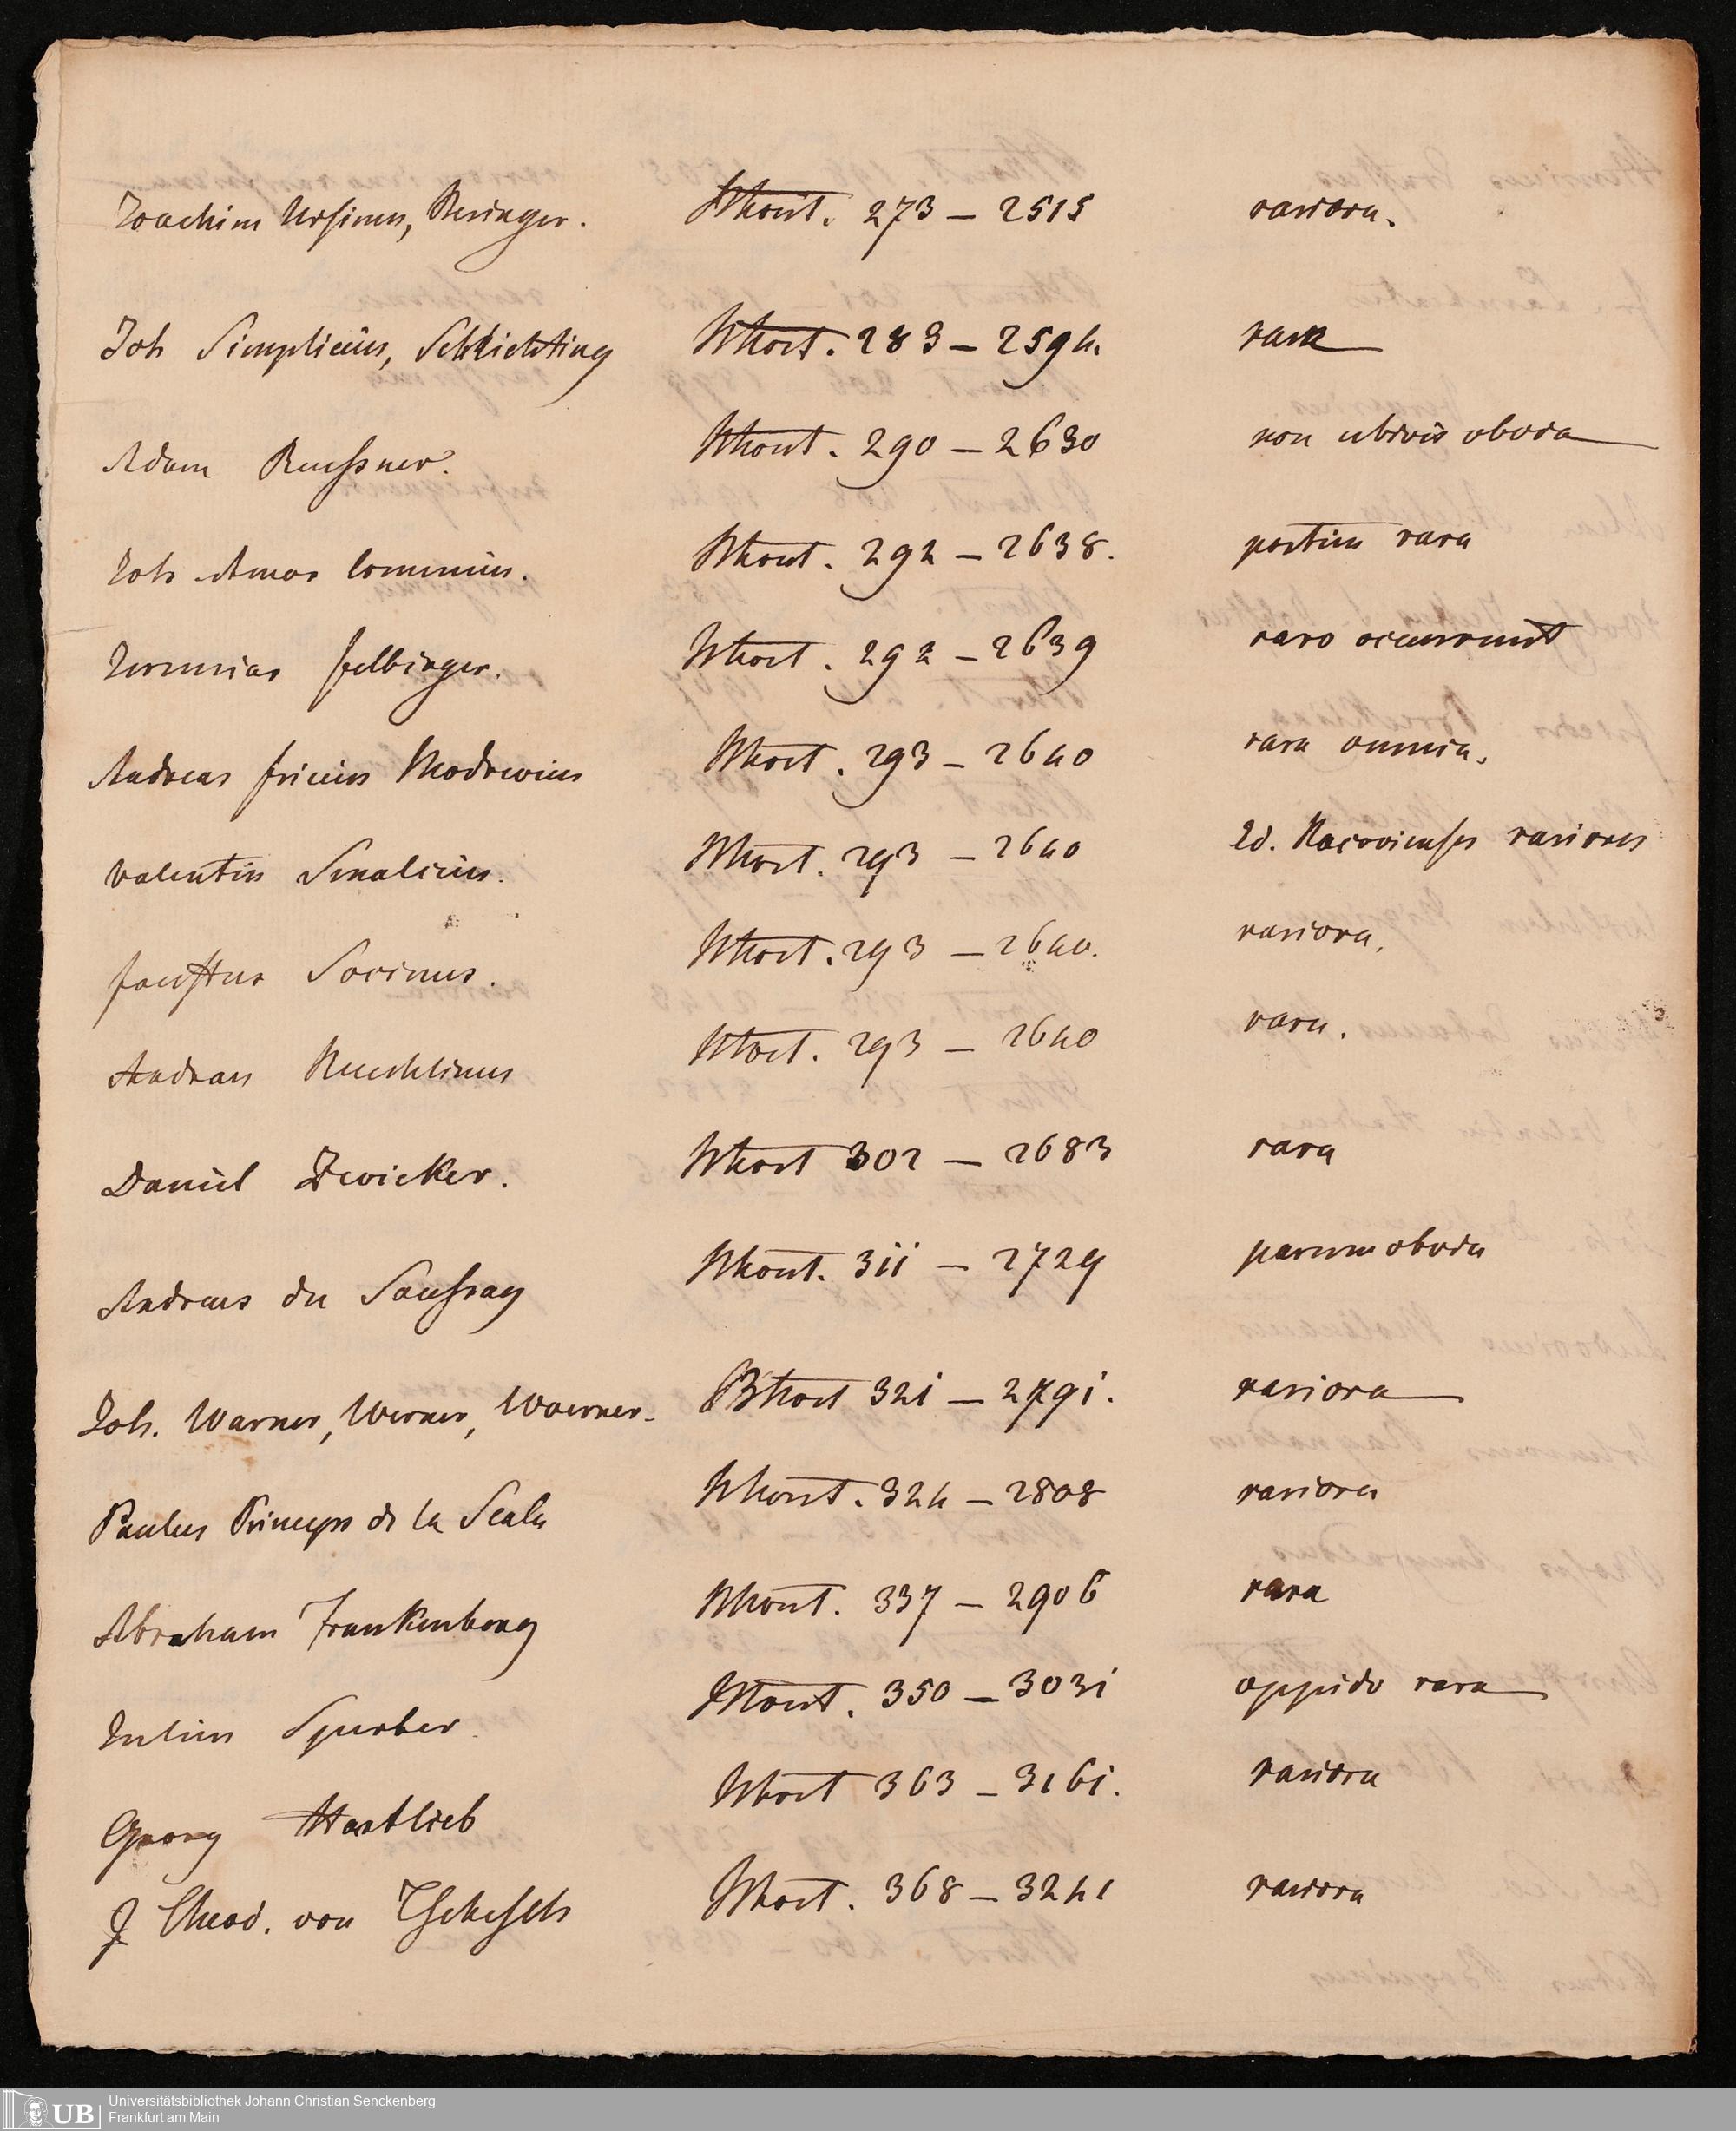 Joachim Ursinus, Beringer. Whort. 273 – 2515 rariora.
Joh Simplicius, Schlichting Whort. 283 – 2594. rara
Adam Reussner. Whort. 290 – 2630 non ubivis obvia
Joh Amos Commenius. Whort. 292 – 2638. partim rara
Jeremias Felbinger. Whort. 292 – 2639 raro occurrunt
Andreas Fricius Modrevius Whort. 293 – 2640 rara omnia.
Valentin Smalcius. Whort. 293 – 2640 Ed. Racovienses rariores
Faustus Socinus. Whort. 293 – 2640. rariora.
Andreas Whort. 293 – 2640 rara.
Daniel Zwicker. Whort 302 – 2683 rara
Andreas du Saussay Whort. 311 – 2729 parum obvia
Joh. Warner, Werner, Woerner. Whort 321 – 2791. rariora
Paulus Princeps de la Scala Whort. 324 – 2808 rariora
Abraham Frankenberg Whort. 337 – 2906 rara
Julius Sperber. Whort. 350 – 3031 oppido rara
Georg Hartlieb Whort 363 – 3161. rariora
J Theod. von Tschesch Whort. 368 – 3241 rariora
UB
Universitätsbibliothek Johann Christian Senckenberg
Frankfurt am Main